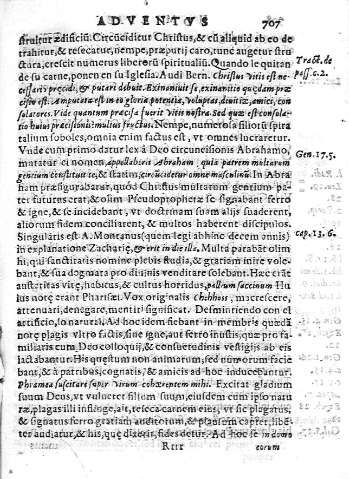 ADVENTVS 707
struitur ædificiũ. Circũciditur Christus, & cũ aliquid ab eo de
trahitur, & resecatur, nempe, præputij caro, tunc augetur stru
ctura, crescit numerus liberorũ spiritualiũ. Quando le quitan
de su carne, ponen en su Iglesia. Audi Bern. Christus vitis est ne
cessariò præcidi, & putari debuit.
Tract. de
pass. c. 2.
solatores. Vide quantum præcisa fuerit vitis nostra. Sed quæ est consola-
tio huius præcisionis? multus fructus. Nempe, numerosa filiorũ spiri
talium soboles, omnia enim factus est, vt omnes lucraretur.
Vnde cum primo datur lex à Deo circuncisionis Abrahamo,
mutatur ei nomen, appellaberis Abraham: quia patrem multarum
gentium constitui te, & statim, circũcidetur omne masculinũ. In Abra
ham præfigurabatur, quòd Christus multarum gentium pa-
ter futurus erat, & olim Pseudoprophetæ se signabant ferro
& igne, & se incidebant, vt doctrinam suam alijs suaderent,
aliorum fidem conciliarent, & multos haberent discipulos.
Gen. 17. 5.
Singularis est A. Montanus (quem legi abhinc decem annis)
in explanatione Zachariæ, & erit in die illa. Multa parabãt olim
cap. 13. 6.
hi, qui sanctitatis nomine plebis studia, & gratiam inire vole-
bant, & sua dogmata pro diuinis venditare solebant. Hæc erãt
austeritas vitæ, habitus, & cultus horridus, pallum saccinum
lus notę erant Pharisæi. Vox originalis chehhess, macrescere,
attenuari, denegare, mentiri significat. Desmintiendo con el
artificio, lo natural. Ad hoc idem fiebant in membris quædã
notę plagis vltro factis, siue igne, aut ferro inustis, quæ pro fa-
miliaris cum Deo colloquij, & consuetudinis vestigijs ab eis
iactabantur. His quęstum non animarum, sed numorum facie
bant, & à patribus, cognatis, & amicis ad hoc inducebantur.
Phramea suscitare super virum cohærentem mihi. Excitat gladium
suum Deus, vt vulneret filium suum, eiusdem cum ipso natu
ræ, plagas illi infligit, ait, reseca carnem eius, vt sic plagatus,
& signatus ferro gratiam auditorum, & plausum captet, libe-
ter audiatur, & his, quę dixerit, fides detur. Ad hoc se in domo
Rrrr eorum